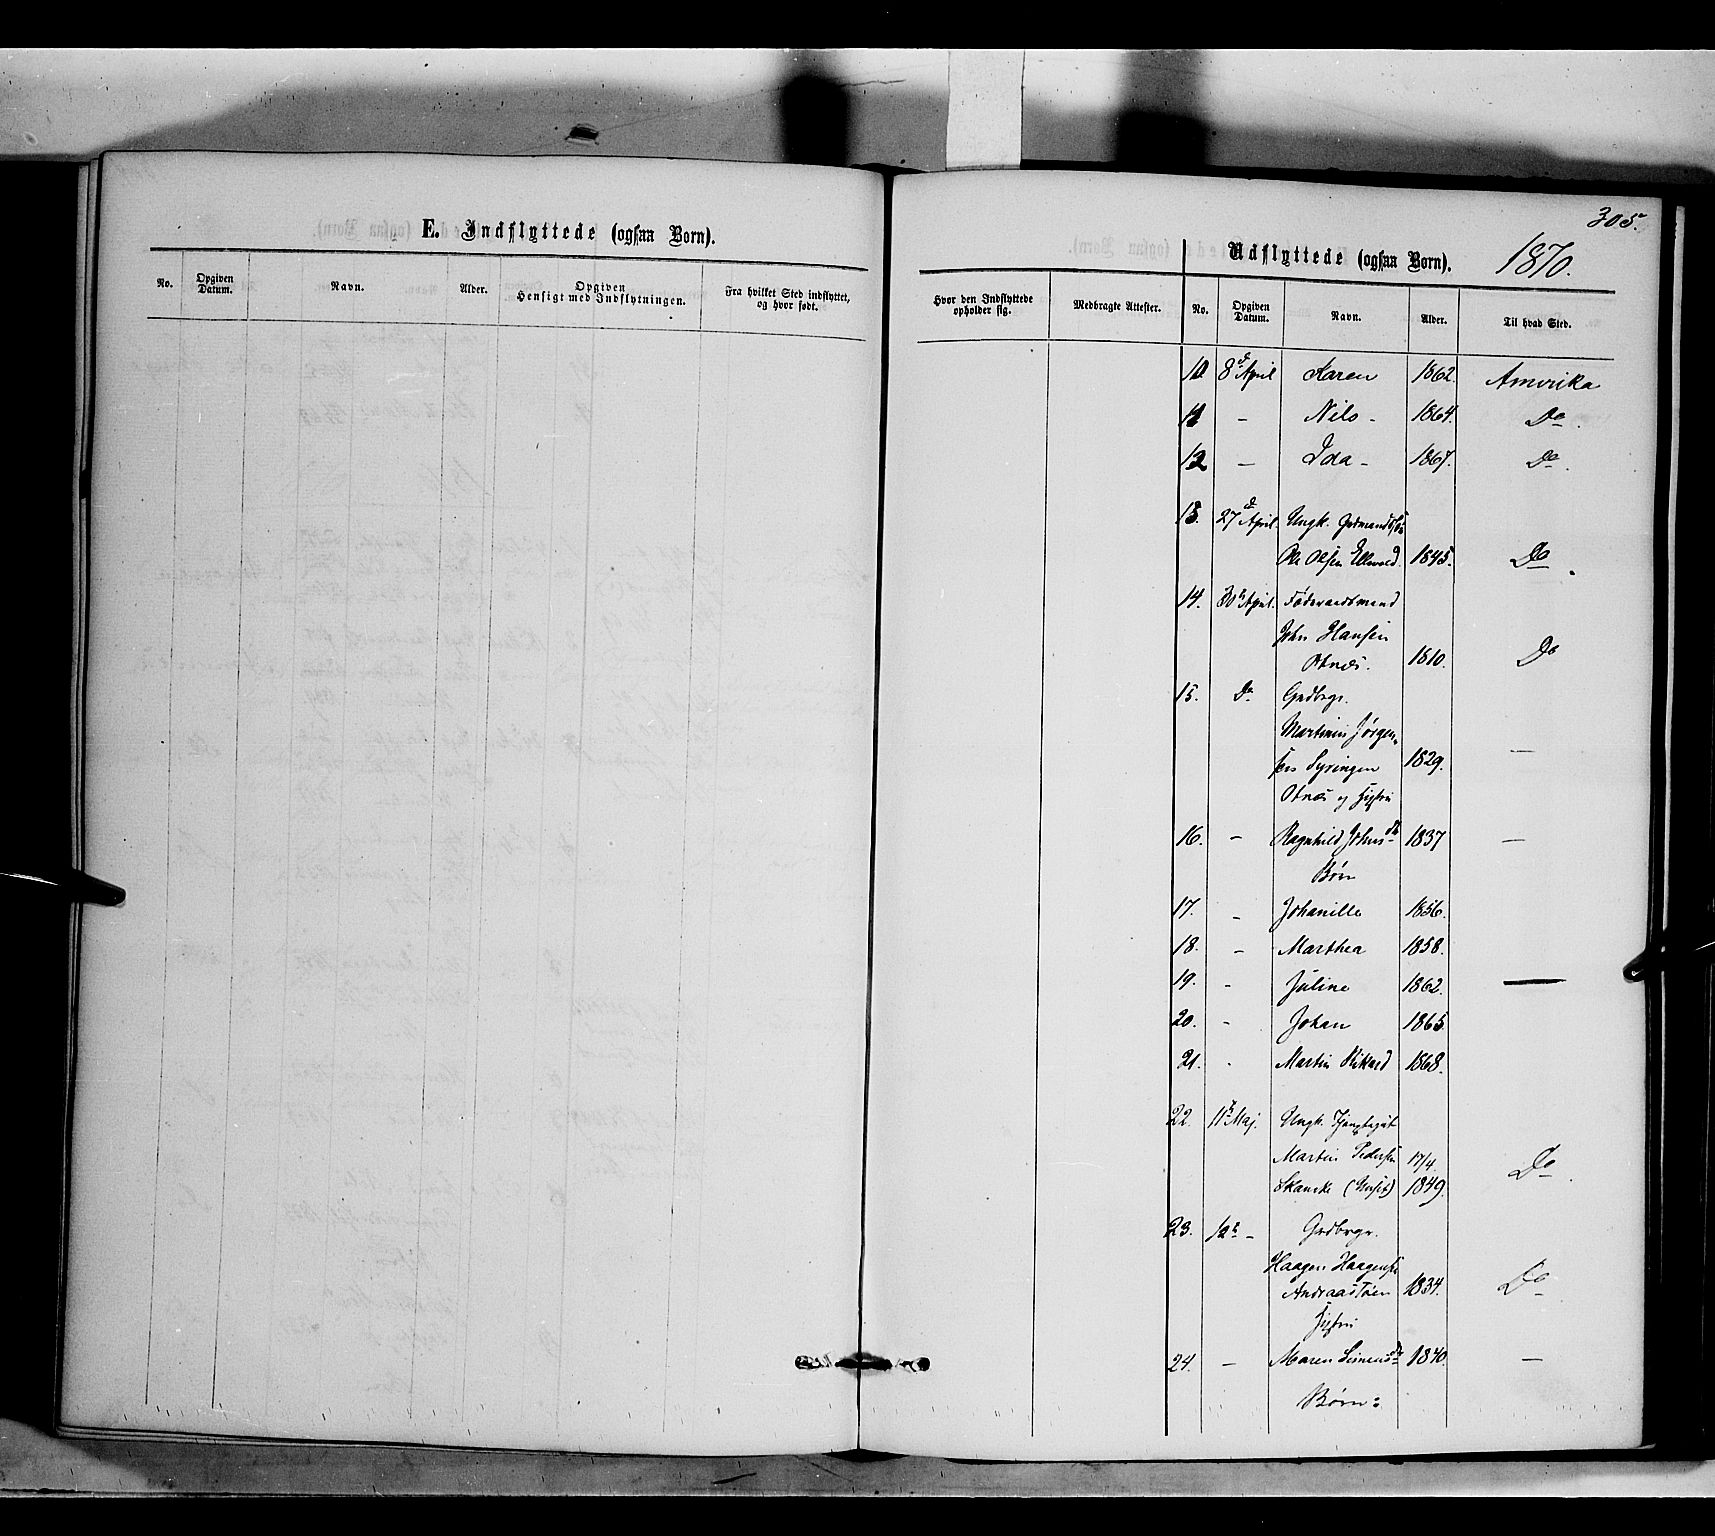 305.
E. Indflyttede (ogsaa Børn).
Udflyttede (ogsaa Børn). 1870.
No. Opgiven Datum. Navn. Alder. Opgiven Hensigt med Indflytningen. Fra hvilket Sted indflyttet, og hvor født.
Hvor den Indflyttede opholder sig. Medbragte Attester. No. Opgiven Datum. Navn. Alder. Til hvad Sted.
10 8d April Karen 1862. Amerika
11 - Nils - 1864. Do.
12 - Ida - 1867. Do.
13. 27d April. Ungk. Grdmands
Ole Olsen 1845. Do.
14. 30 April. Føderaadsmand
John Hansen
Otnæs. 1810. Do
15. Do Grdbrgr.
Martinus Jørgen-
sen Syringen 1829. —
Otnæs og Hustru
16. - Ragnhild Johnsdtr 1837 —
Børn
17. - Johanille 1856.
18. - Marthea 1858.
19. - Juline 1862. —
20. - Johan 1865.
21. - Martin Rikard 1868.
22. 11 Maj. Ungk.
Martin Pedersen 17/4.
Skanske 1849. Do.
23. 12 - Grdbrgr.
Haagen Haagensen
Andraastøen 1834. Do
Hustru
24. — Maren Simensdtr 1840. —
Børn: